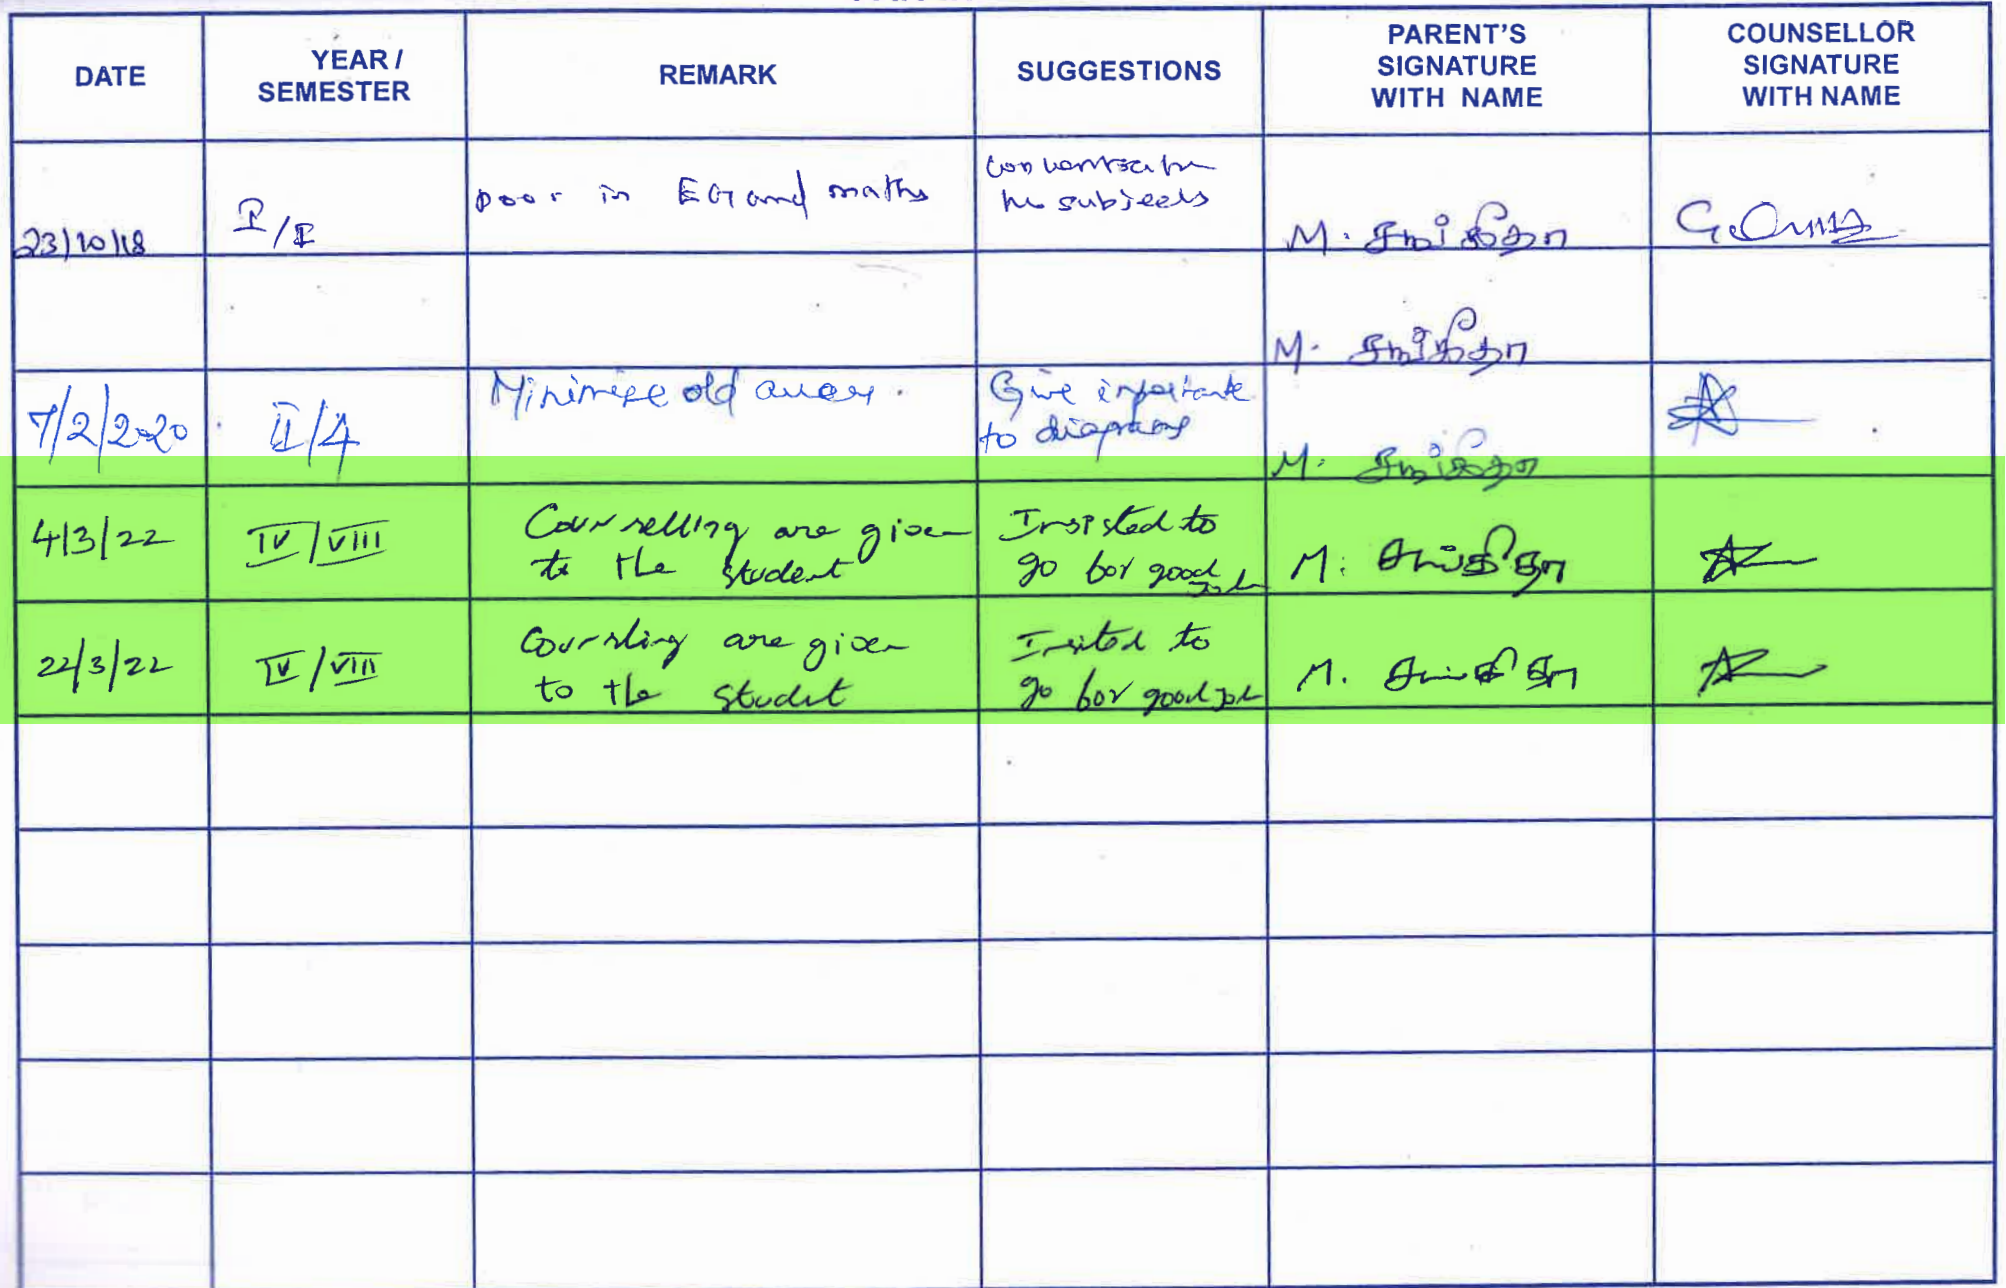 DATE
YEAR /
SEMESTER
REMARK
SUGGESTIONS
PARENT'S
SIGNATURE
WITH NAME
COUNSELLOR
SIGNATURE
WITH NAME
23/10/18
I/I
poor in EG and maths
subjects
M. சங்கீதா
M. சங்கீதா
7/2/2020
II/4
Minimise old
Give importante
to diagrams
M. சங்கீதா
4/3/22
IV/VIII
Counselling are given
to the student
Insisted to
go for good Job
M. சங்கீதா
22/3/22
IV/VIII
Counsling are given
to the studet
Insited to
go for good job
M. சங்கீதா